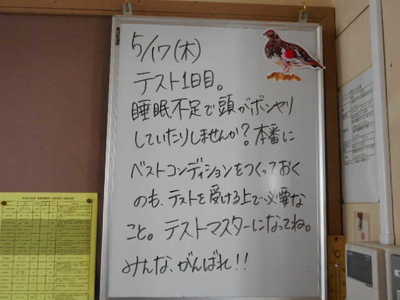 5/17(木)
テスト1日目。
睡眠不足で頭がボンヤリ
していたりしませんか?本番に
ベストコンディションをつくっておく
のも、テストを受ける上で必要な
こと。テストマスターになってね。
みんな、がんばれ!!